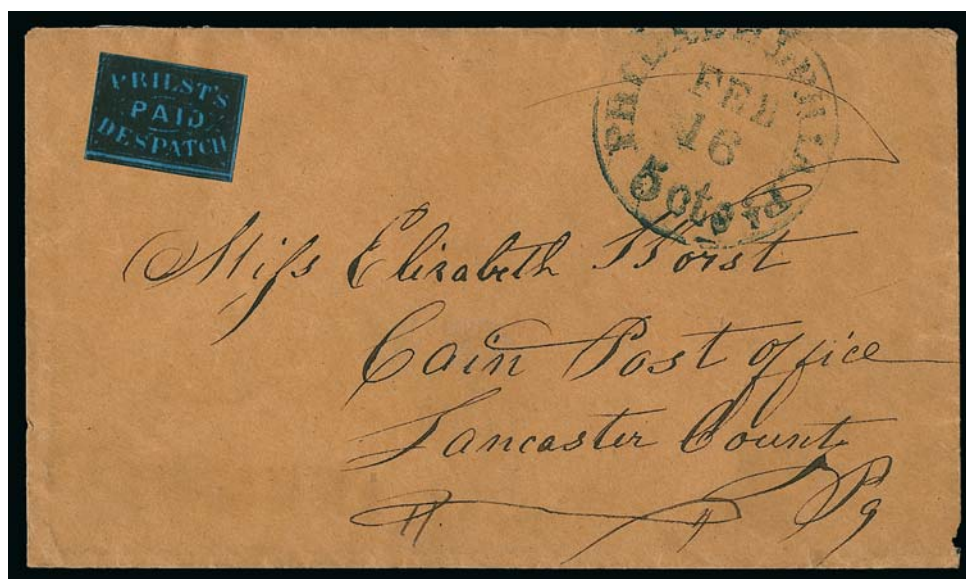 PRIEST'S
PAID
DESPATCH
PHILADELPHIA Pa
FEB
16
5 cts
Miss Elizabeth Borst
Cain Post office
Lancaster County
Pa